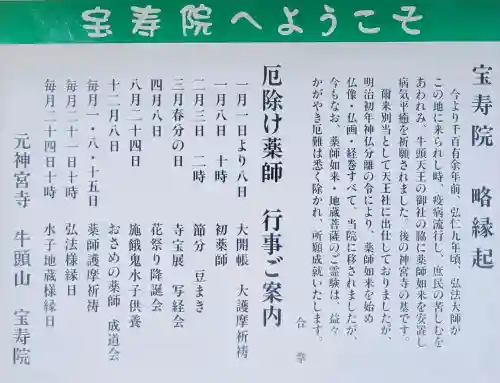 宝寿院へようこそ
宝寿院 略縁起
今より千百有余年前、弘仁九年頃、弘法大師が
この地に来られし時、疫病流行し、庶民の苦しむを
あわれみ、牛頭天王の御社の脇に薬師如来を安置し
病気平癒を祈願されました。後の神宮寺の基です。
爾来別当として天王社に出仕しておりましたが、
明治初年神仏分離の令により、薬師如来を始め
仏像・仏画・経巻すべて、当院に移されましたが、
今もなお、薬師如来・地蔵菩薩のご霊験は、益々
かがやき厄難は悉く除かれ、所願成就いたします。
合掌
厄除け薬師 行事ご案内
一月一日より八日 大開帳 大護摩祈祷
一月八日 十時 初薬師
二月三日 二時 節分 豆まき
三月春分の日 寺宝展 写経会
四月八日 花祭り降誕会
八月二十四日 施餓鬼水子供養
十二月八日 おさめの薬師 成道会
毎月一・八・十五日 薬師護摩祈祷
毎月二十一日十時 弘法様縁日
毎月二十四日十時 水子地蔵様縁日
元神宮寺 牛頭山 宝寿院